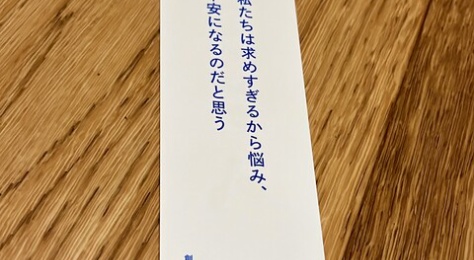 私たちは求めすぎるから悩み、
安になるのだと思う